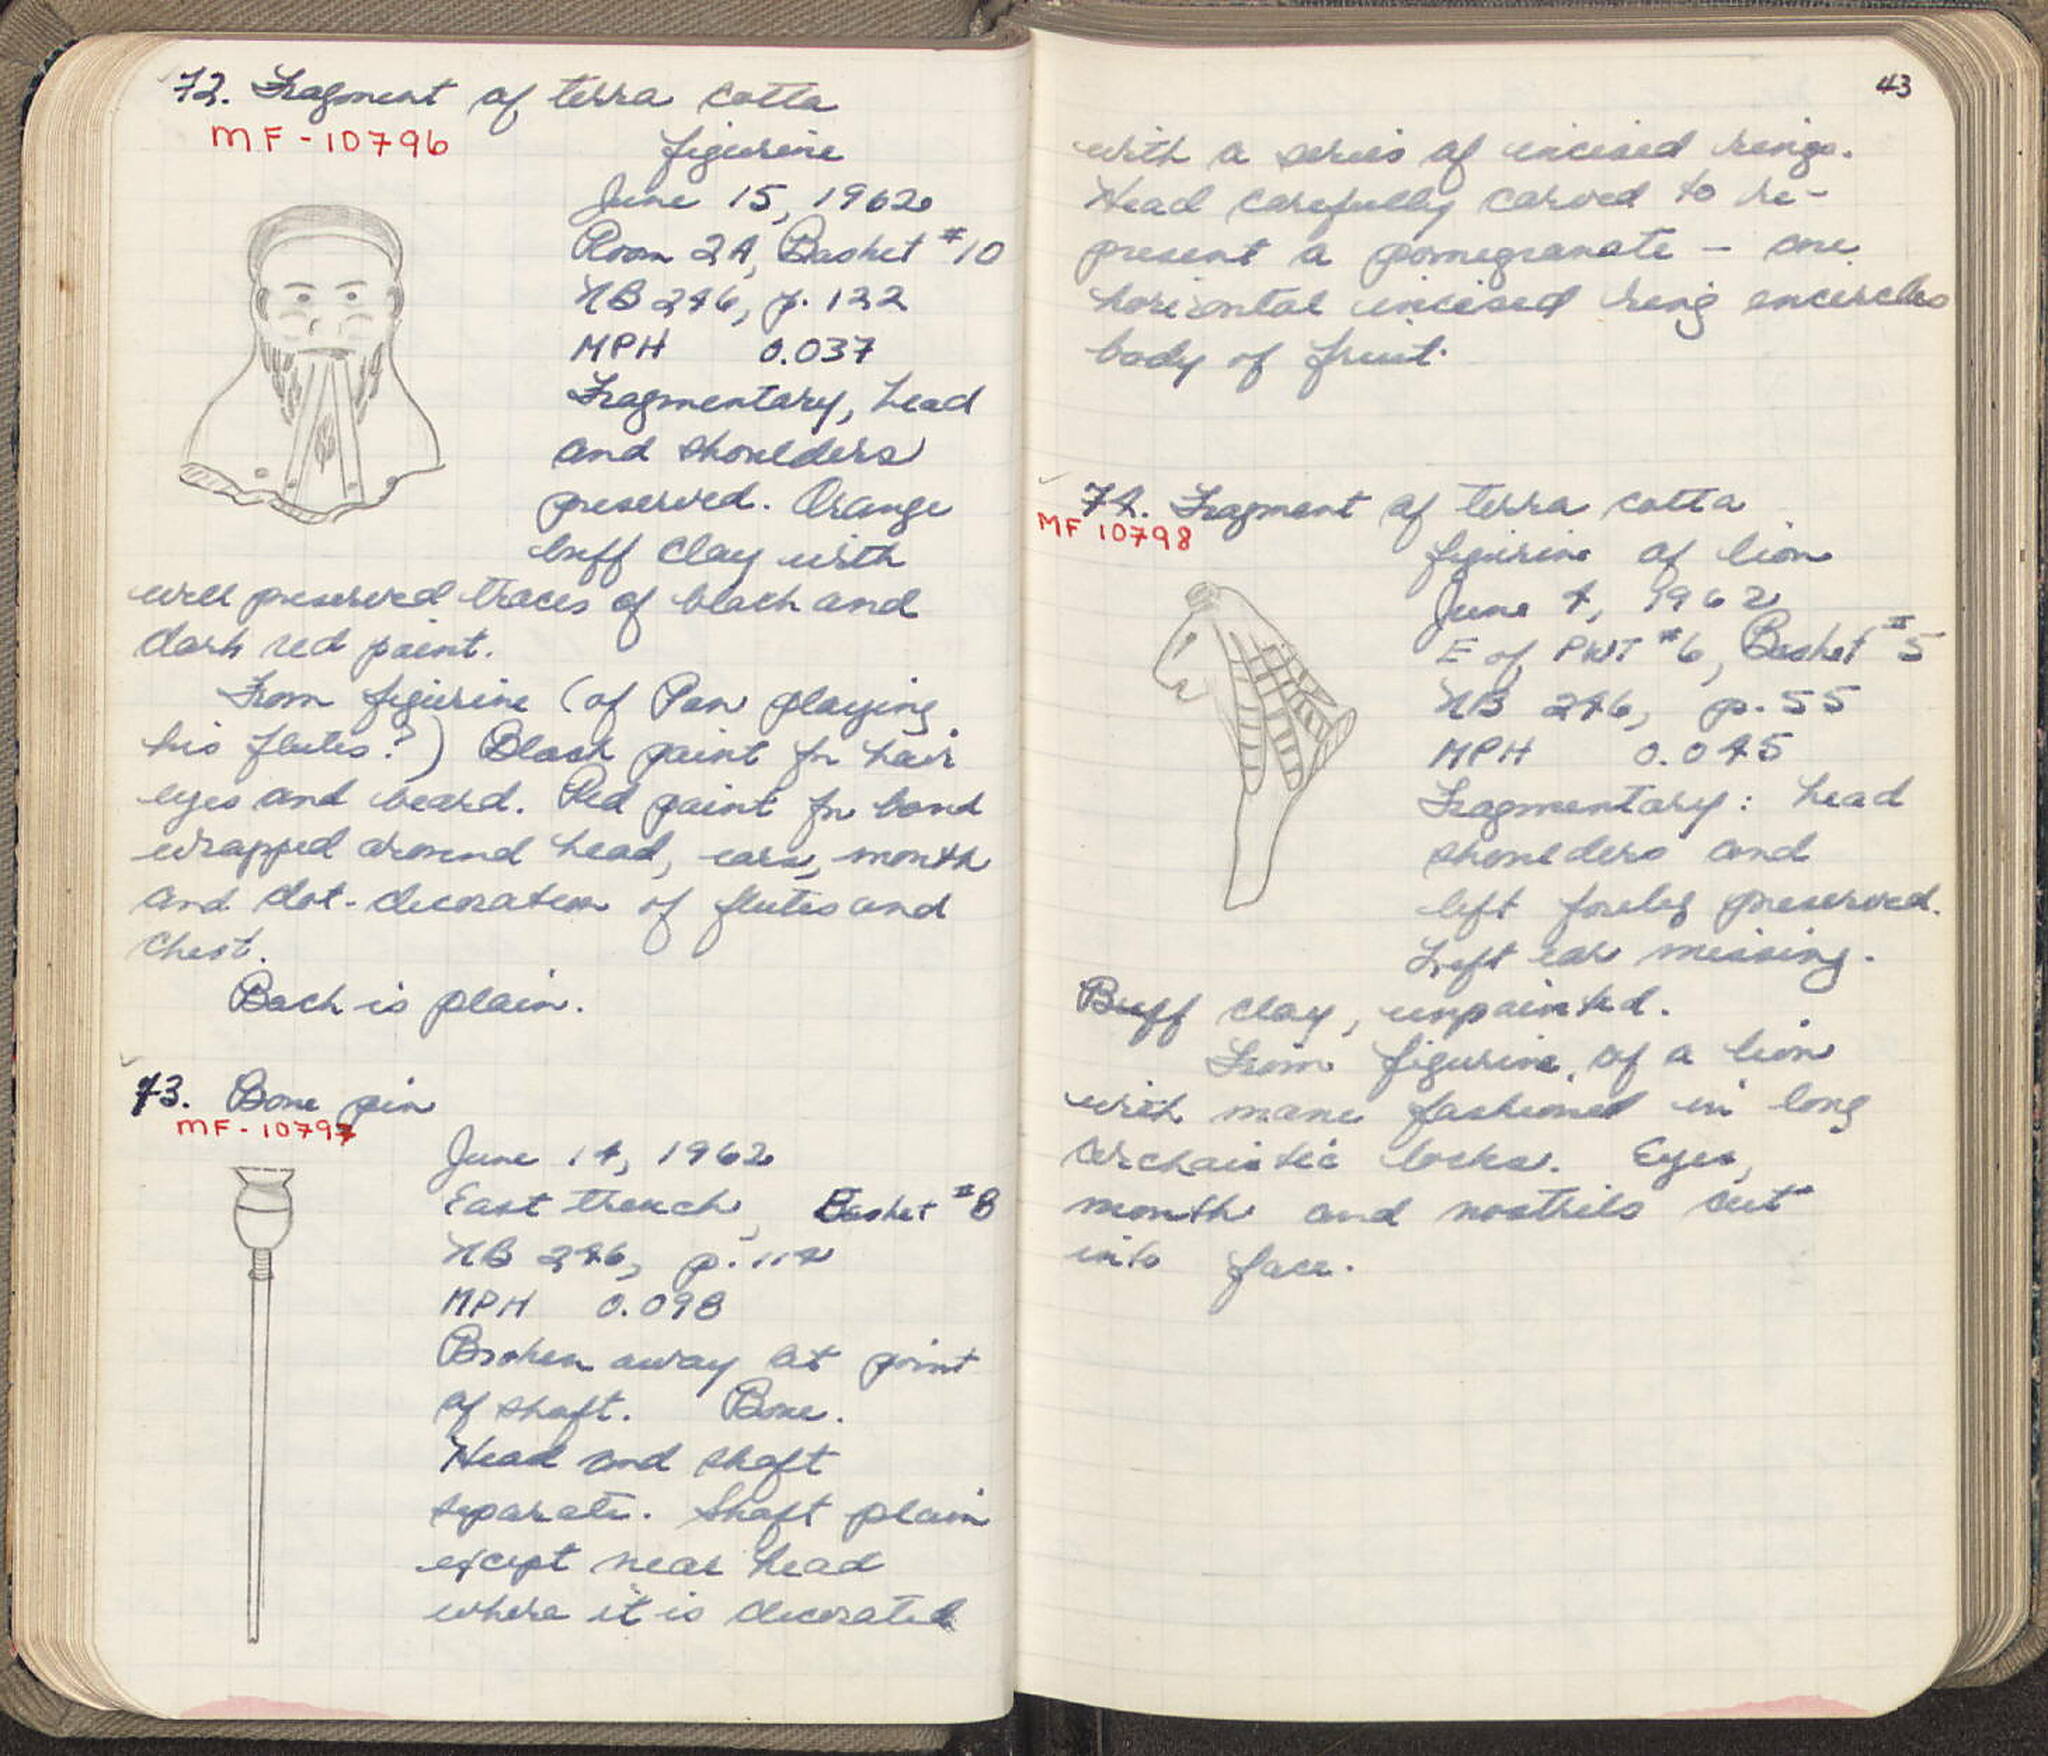 72. Fragment of terra cotta
MF-10796
figurine
June 15, 1962
Room 2A, Basket #10
NB 246, p. 122
MPH 0.037
Fragmentary, head
and shoulders
preserved. Orange
buff clay with
well preserved traces of black and
dark red paint.
From figurine (of Pan playing
his flutes?) Black paint for hair
eyes and beard. Red paint for band
wrapped around head, ears, mouth
and dot-decoration of flutes and
chest.
Back is plain.
73. Bone pin
MF-10797
June 14, 1962
East trench, Basket #8
NB 246, p. 114
MPH 0.098
Broken away at point
of shaft. Bone.
Head and shaft
separate. Shaft plain
except near head
where it is decorated
43
with a series of incised rings.
Head carefully carved to re-
present a pomegranate - one
horizontal incised ring encircles
body of fruit.
74. Fragment of terra cotta
MF 10798
figurine of lion
June 4, 1962
E of PWT #6, Basket #5
NB 246, p. 55
MPH 0.045
Fragmentary: head
shoulders and
left foreleg preserved.
Left ear missing.
Buff clay, unpainted.
From figurine of a lion
with mane fashioned in long
archaistic locks. Eyes,
mouth and nostrils cut
into face.